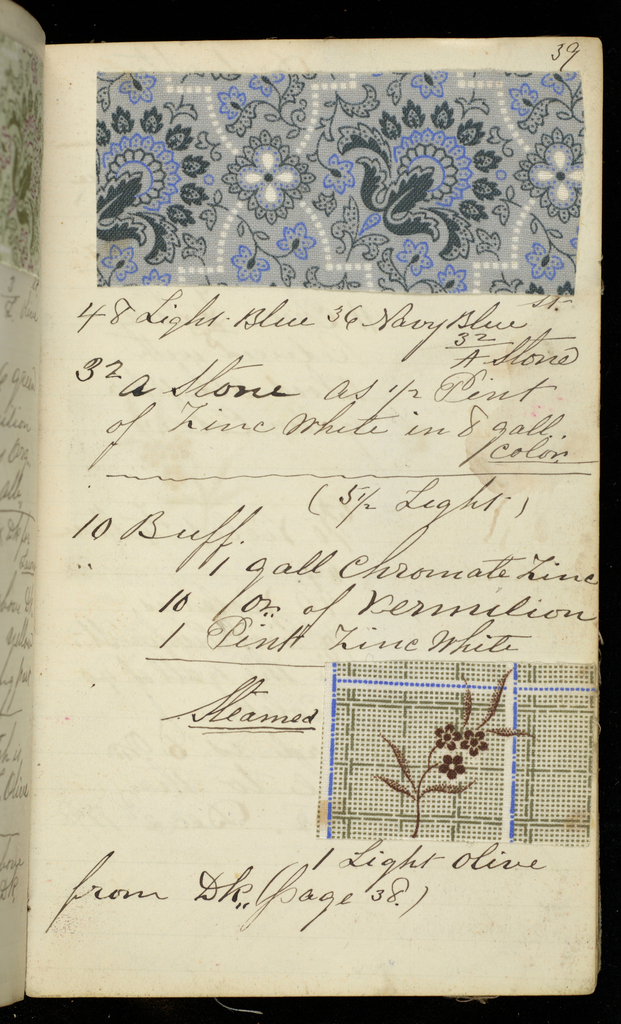 39
48 Light Blue 36 Navy Blue st.
32/A Stone
32 a Stone as 1/2 Pint
of Zinc White in 8 gall
color
(5 1/2 Light)
10 Buff.
" 1 gall Chromate Zinc
10 oz. of Vermilion
1 Pint Zinc White
Steamed
1 Light Olive
from Dk,, (page 38.)